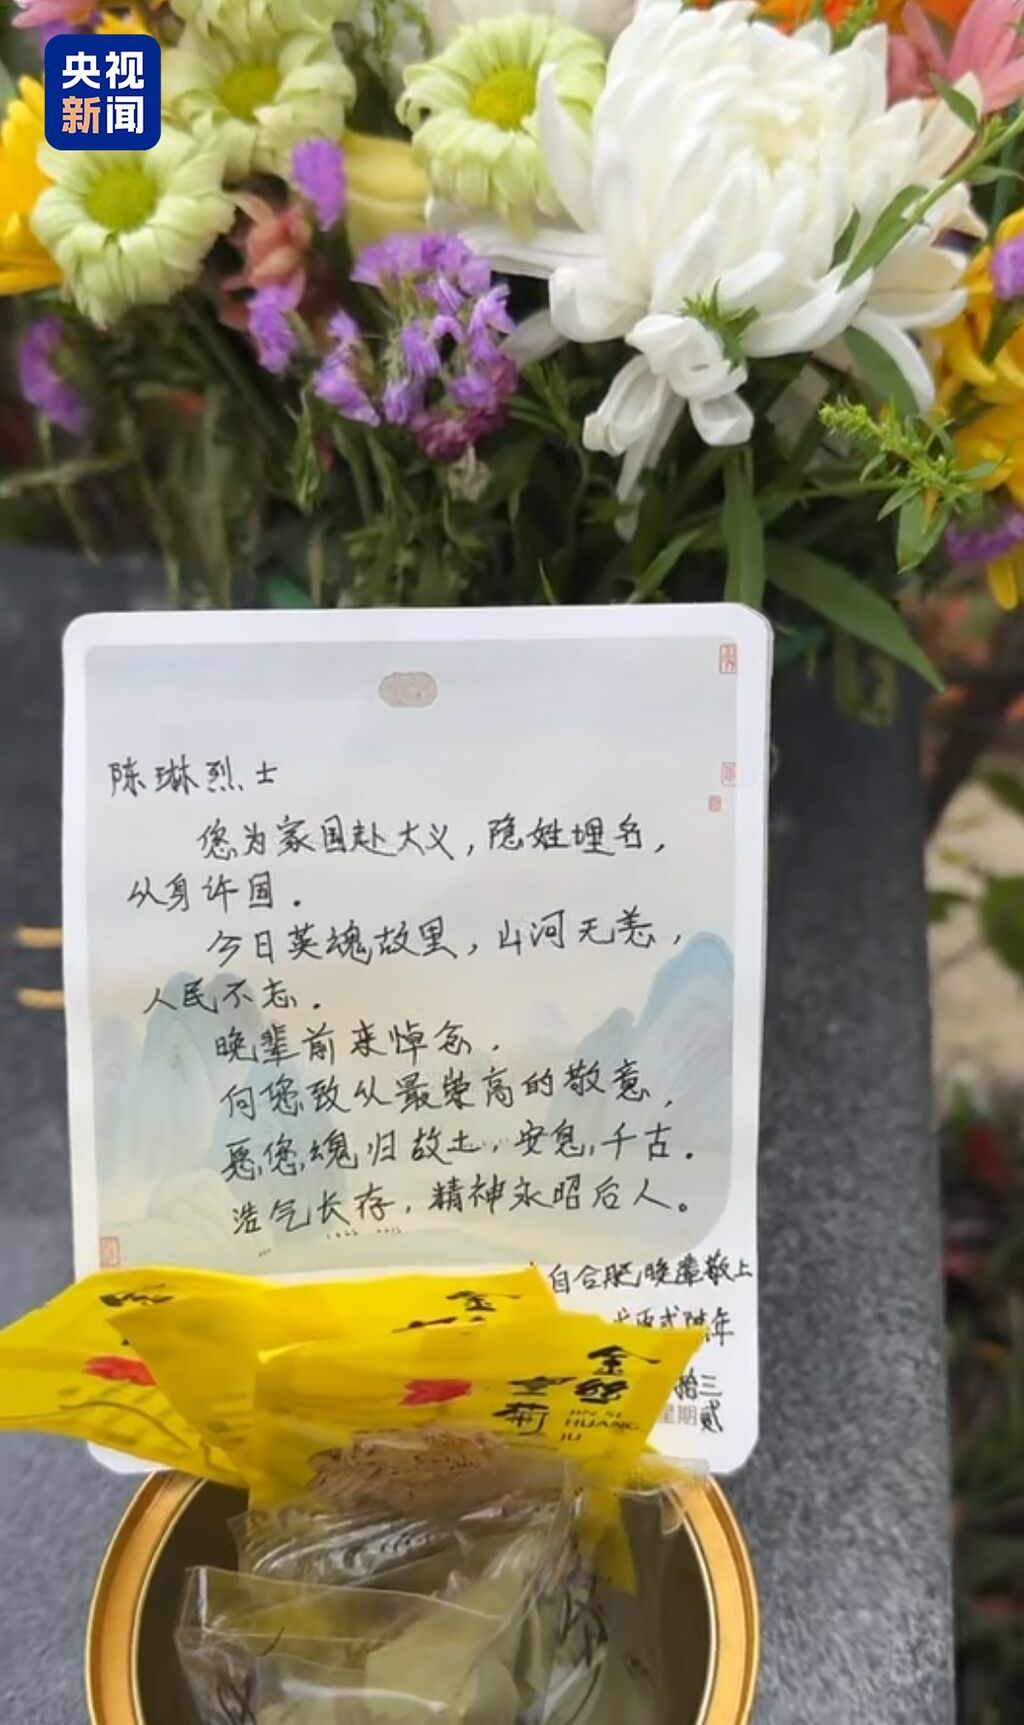 央视
新闻
陈琳烈士
您为家国赴大义，隐姓埋名，
以身许国．
今日英魂故里，山河无恙，
人民不忘．
晚辈前来悼念．
向您致以最荣高的敬意，
愿您魂归故土，安息千古．
浩气长存，精神永昭后人。
自合肥晚辈敬上
年
拾三
星期贰
金丝
皇菊
JIN SI
HUANG
JU